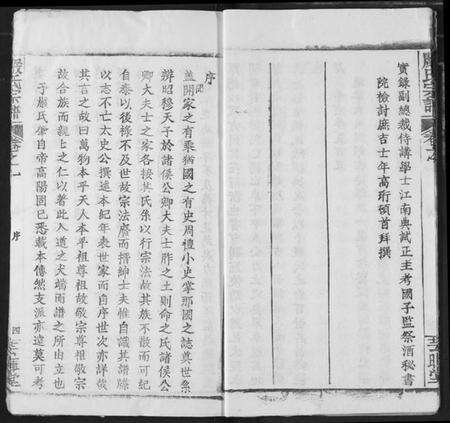 實錄副總裁侍講學士江南典試正主考國子監祭酒秘書
院檢討庶吉士年高珩頓首拜撰
序
蓋聞家之有乘猶國之有史周禮小史掌邦國之誌奠世系
辨昭穆天子於諸侯公卿大夫士胙之土則命之氏諸侯公
卿大夫士之家各按其氏系以行宗法故其族不散而可紀
自秦以後祿不及世故宗法廢而搢紳士夫惟自識其譜牒
以志不亡太史公撰述本紀年表世家而自序世次亦詳哉
其言之故曰萬物本乎天人本乎祖尊祖故敬宗尊祖敬宗
故合族而親上之仁以著此人道之大端而譜之所由立也
予 氏係自帝高陽固已悉載本傳然支派亦遠莫可考
氏宗譜
卷之一
序
四